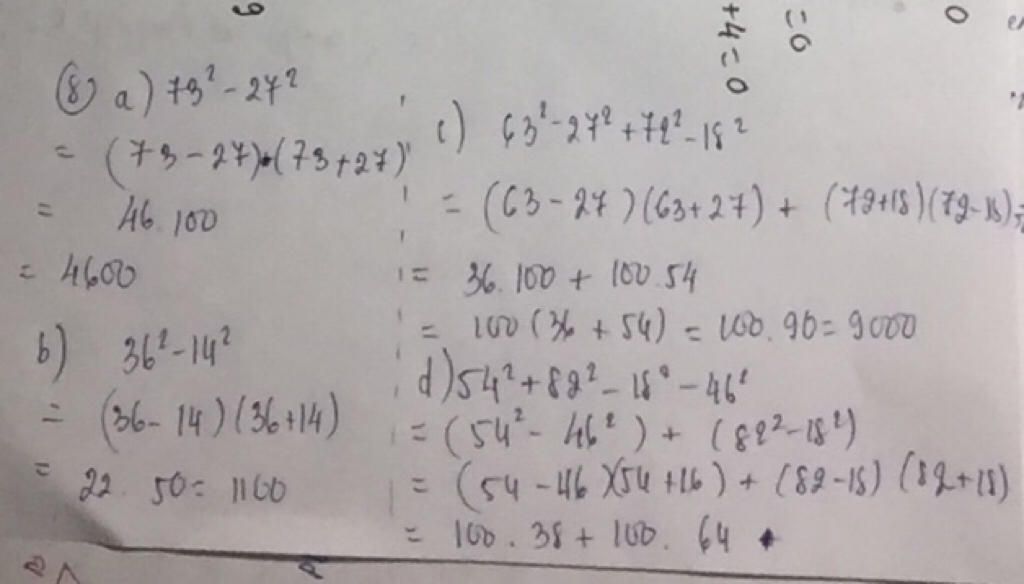 9
+4=0
=0
0
⑧ a) 73² - 27²
= (73 - 27).(73 + 27)
= 46.100
= 4600
b) 36² - 14²
= (36 - 14)(36 + 14)
= 22. 50 = 1100
c) 63² - 27² + 72² - 18²
= (63 - 27)(63 + 27) + (72+18)(72-18)
= 36.100 + 100.54
= 100(36 + 54) = 100.90 = 9000
d) 54² + 82² - 18² - 46²
= (54² - 46²) + (82² - 18²)
= (54 - 46)(54 + 46) + (82 - 18)(82 + 18)
= 100. 38 + 100. 64